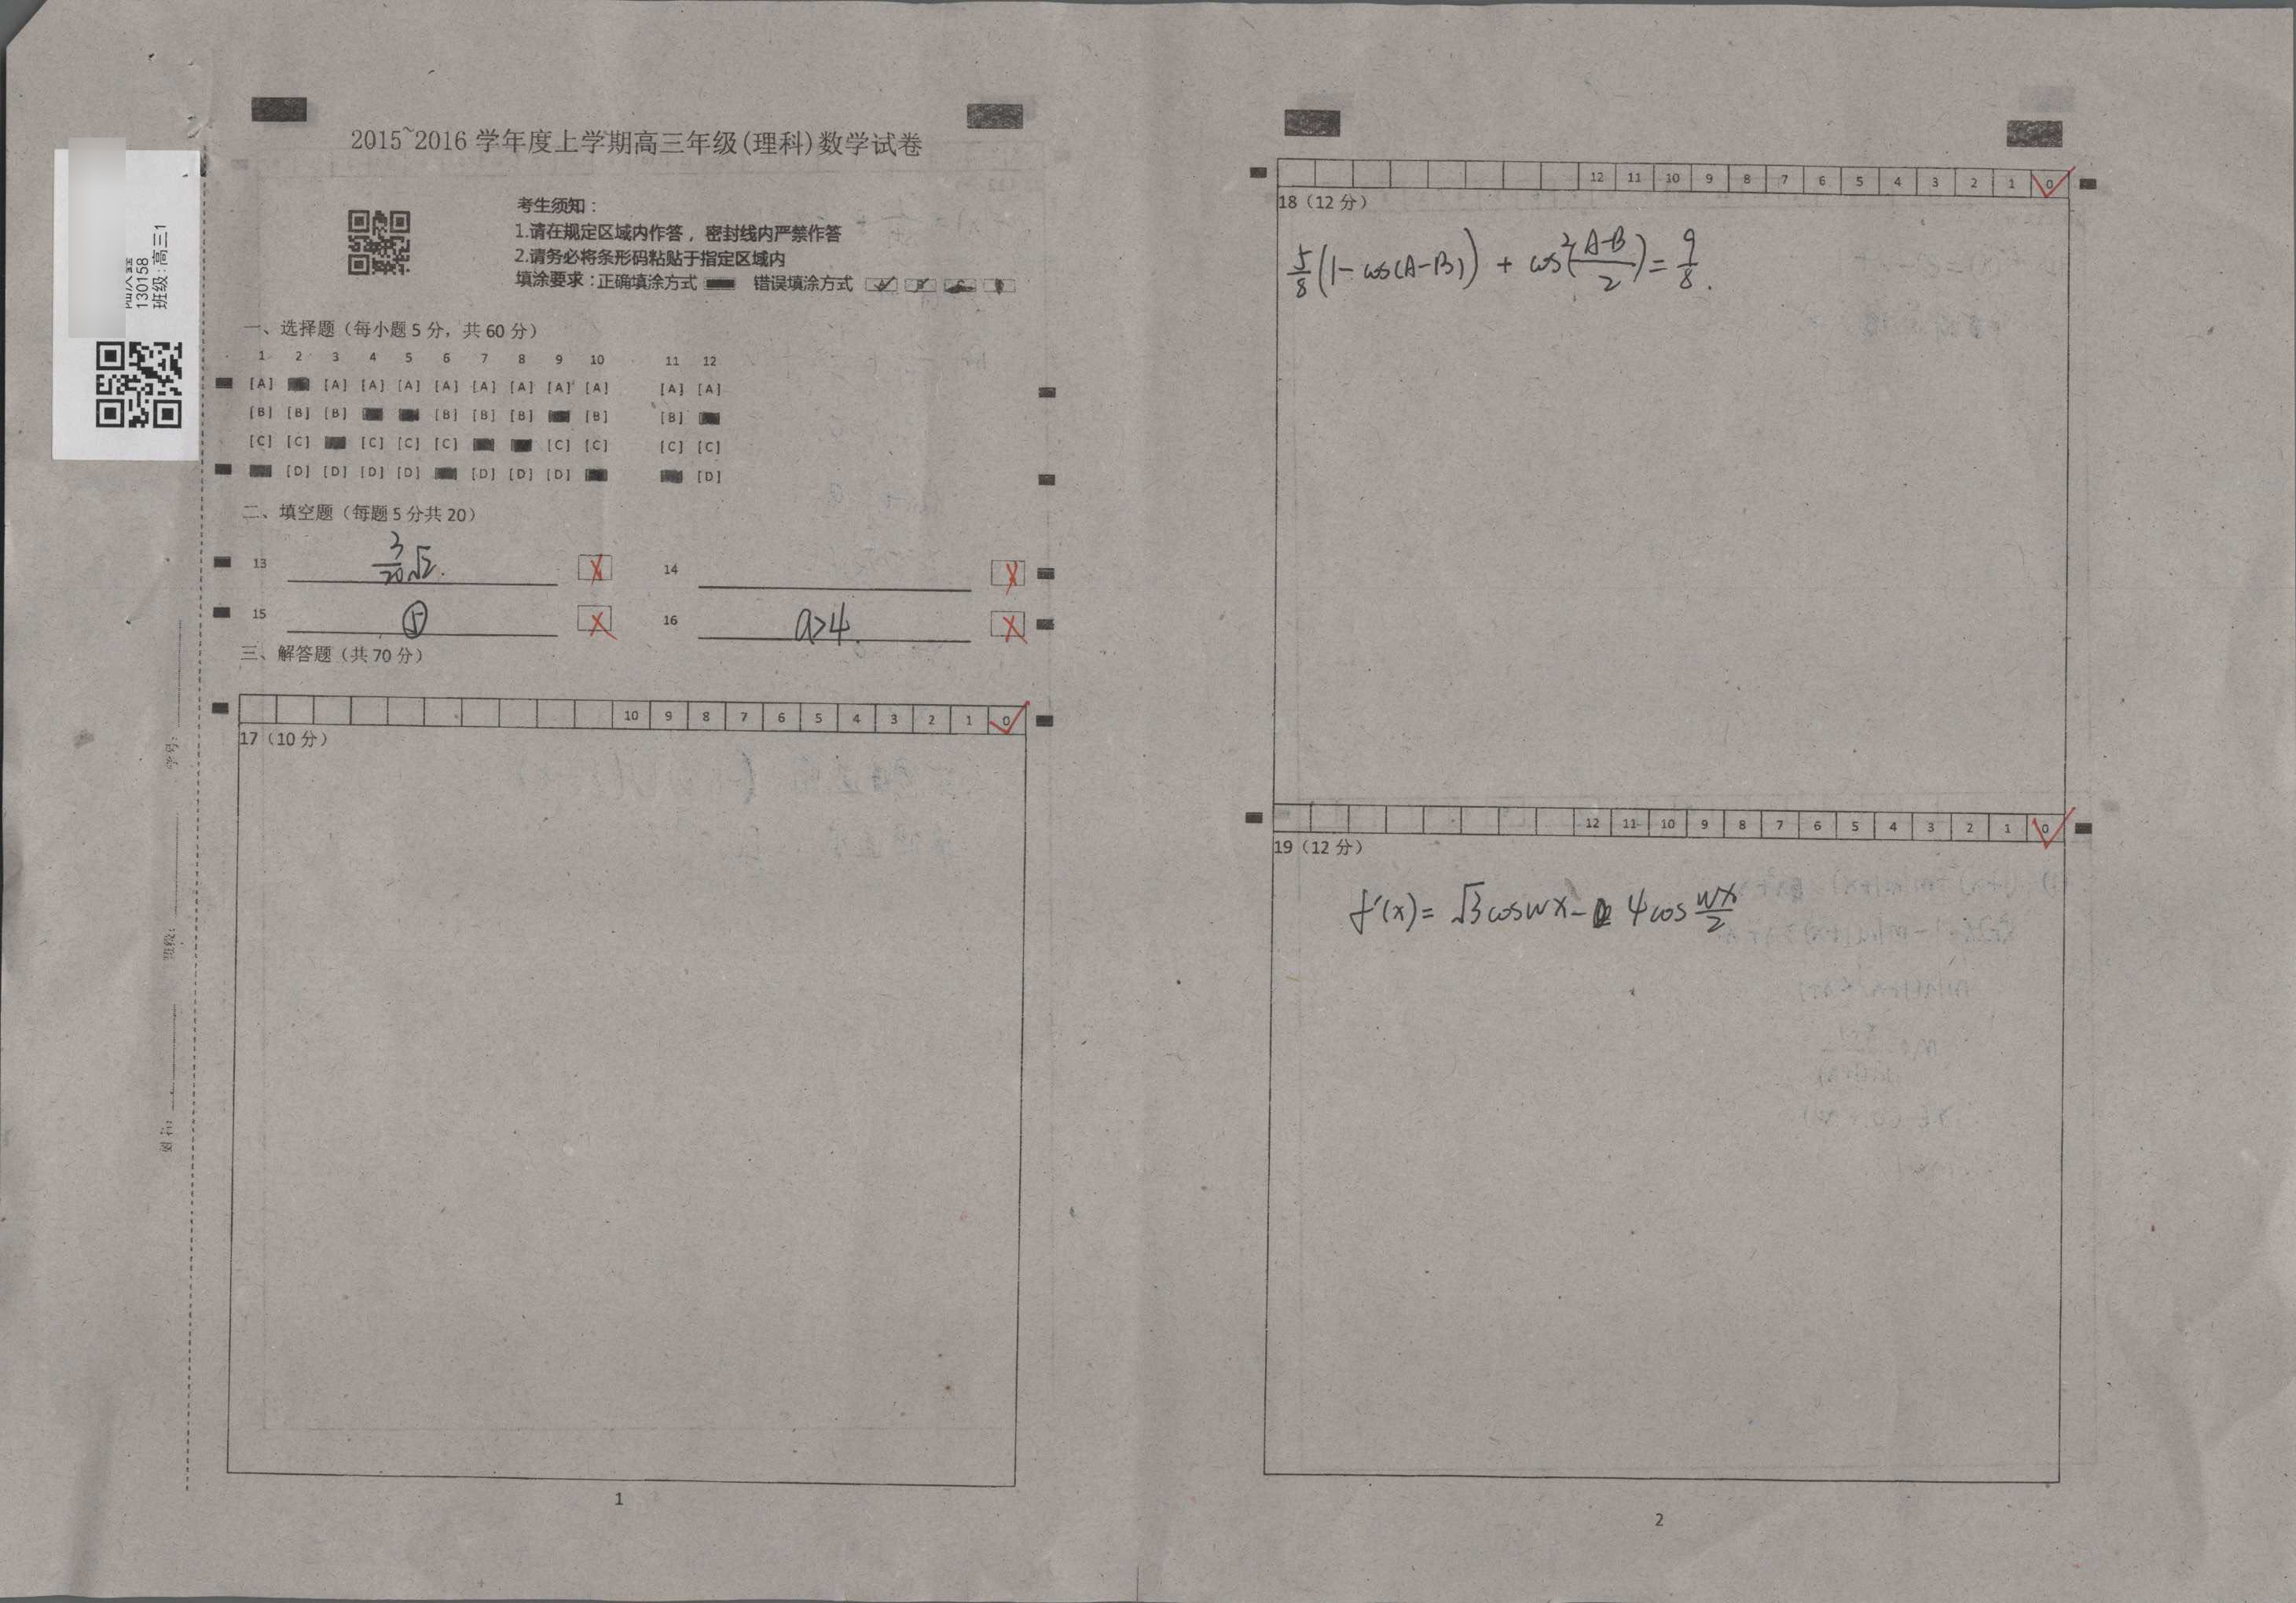 2015~2016 学年度上学期高三年级(理科)数学试卷
130158
班级:高三1
考生须知:
1.请在规定区域内作答,密封线内严禁作答
2.请务必将条形码粘贴于指定区域内
填涂要求:正确填涂方式 错误填涂方式
一、选择题(每小题 5 分,共 60 分)
1 2 3 4 5 6 7 8 9 10 11 12
[A] [A] [A] [A] [A] [A] [A] [A] [A] [A] [A]
[B] [B] [B] [B] [B] [B] [B] [B]
[C] [C] [C] [C] [C] [C] [C] [C] [C]
[D] [D] [D] [D] [D] [D] [D] [D]
二、填空题(每题 5 分共 20)
13 3/20 √2. 14
15 ⑤ 16 a>4.
三、解答题(共 70 分)
10 9 8 7 6 5 4 3 2 1 0
17(10 分)
学号:
班级:
姓名:
1
12 11 10 9 8 7 6 5 4 3 2 1 0
18(12 分)
5/8(1-cos(A-B)) + cos²(A-B/2) = 9/8.
12 11 10 9 8 7 6 5 4 3 2 1 0
19(12 分)
f'(x) = √3 cos wx - 4 cos wx/2
2